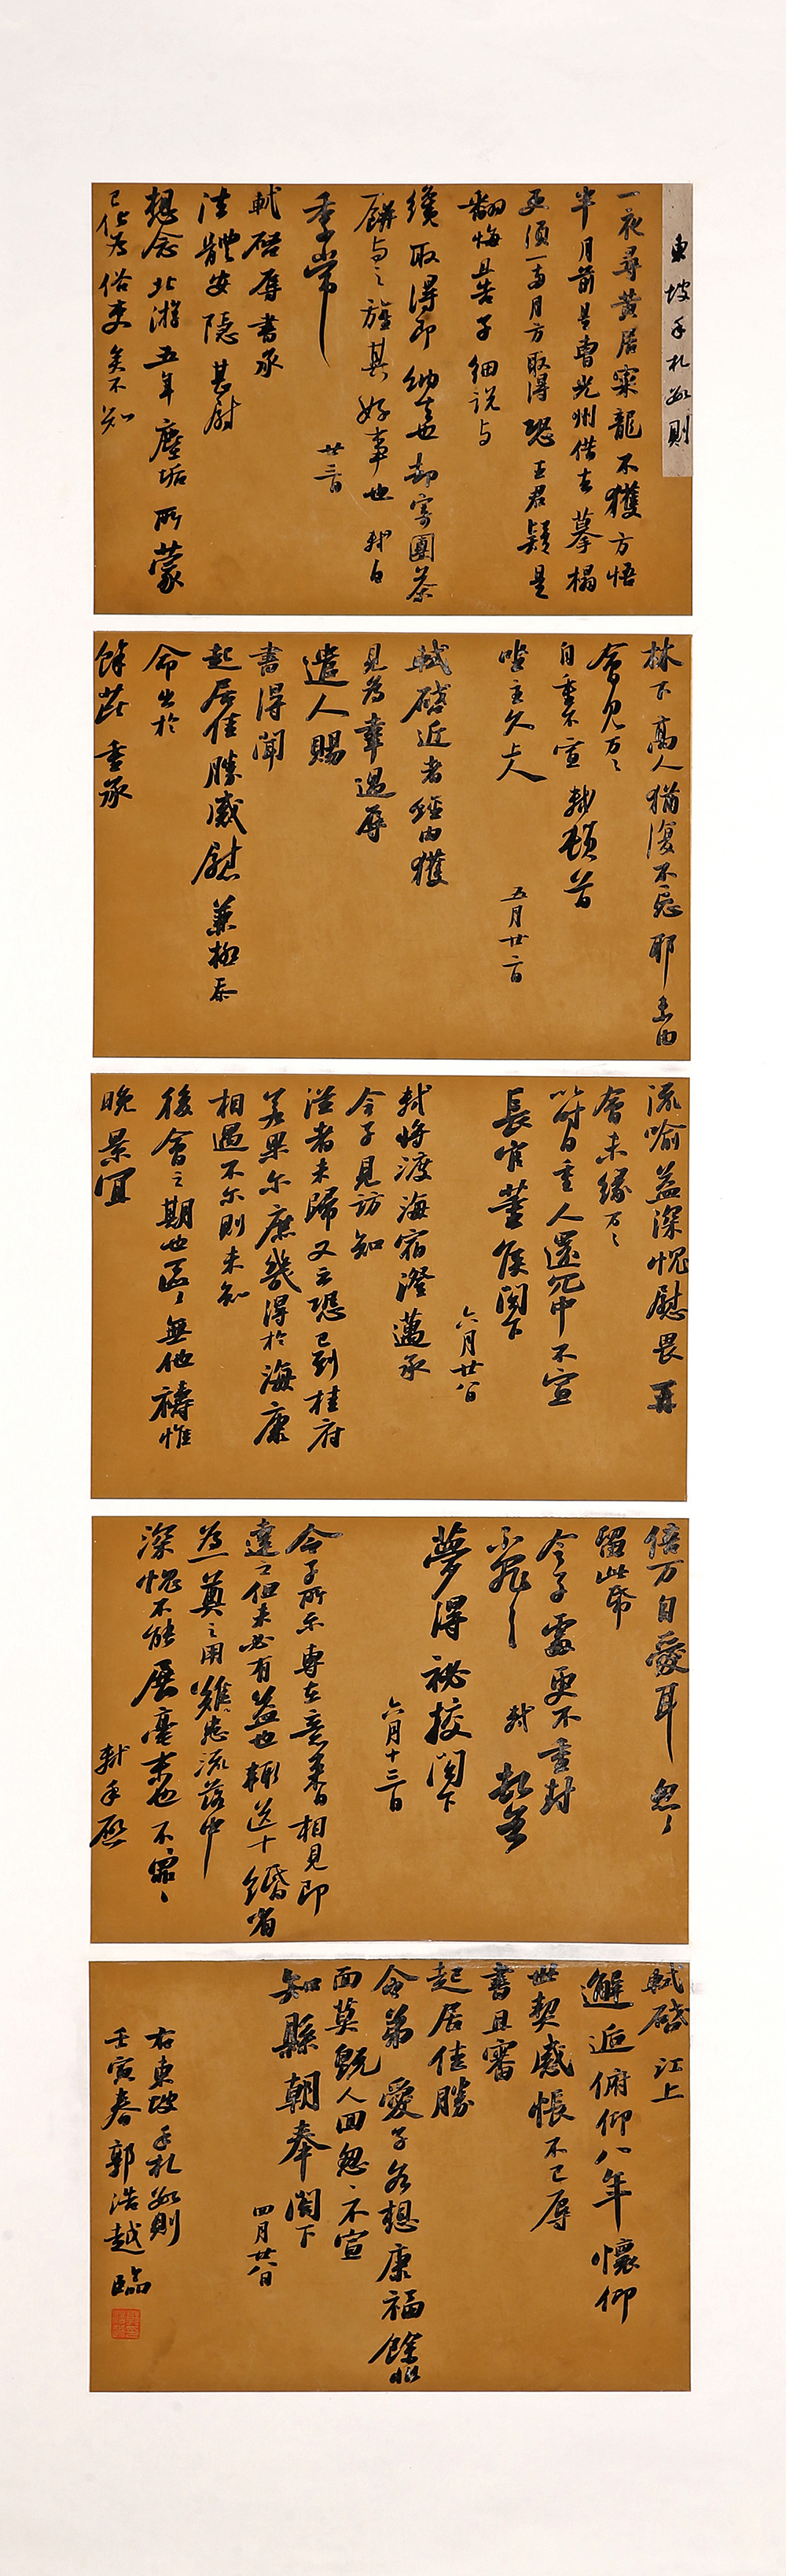 東坡手札數則
一夜尋黃居寀龍不獲方悟
半月前是曹光州借去摹榻
更須一兩月方取得恐王君疑是
翻悔且告子細說与
纔取得即納去也却寄團茶
一餅与之旌其好事也軾白
季常
廿三日
軾啓辱書承
法體安隱甚慰
想念北游五年塵垢所蒙
已化為俗吏矣不知
林下高人猶復不忘耶未由
會見万万
自重不宣軾頓首
坐主久上人
五月廿二日
軾啓近者經由獲
見為幸過辱
遣人賜
書得聞
起居佳勝感慰兼極忝
命出於
餘芘重承
流喻益深愧慰畏再
會未緣万万
以時自重人還冗中不宣
長官董侯閣下
六月廿八日
軾將渡海宿澄邁承
令子見訪知
從者未歸又云恐已到桂府
若果尔庶幾得於海康
相遇不尔則未知
後會之期也區區無他禱惟
晚景宜
倍万自愛耳忽忽
留此帋
令子處更不重封
不罪軾頓首
夢得祕校閣下
六月十三日
令子所示專在意來日相見即
達之但未必有益也輒送十緡省
為一奠之用難患流落中
深愧不能展毫末也不罪不罪
軾手啟
軾啓江上
邂逅俯仰八年懷仰
世契感悵不已辱
書且審
起居佳勝
令弟愛子各想康福餘非
面莫既人回忽忽不宣
知縣朝奉閣下
四月廿八日
右東坡手札數則
壬寅春郭浩越臨